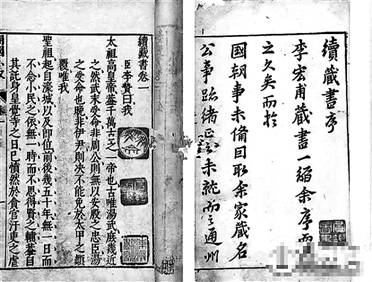 續藏書序
李宏甫藏書一編余序而
之久矣而於
國朝事未備因取余家藏名
公事跡緒正之未就而之通州
續藏書卷一
臣李贄曰我
太祖高皇帝蓋千萬古之一帝也古唯湯武庶幾近
之然武未受命非周公則無以安殷之忠臣湯
之受命也晚非伊尹則決不能免於太甲之顛
覆唯我
聖祖起自濠城以及即位前後幾五十年無一日而
不念小民之依無一時而不思得賢之輔蓋自
其託身皇覺寺之日已憤然於貪官汙吏之虐